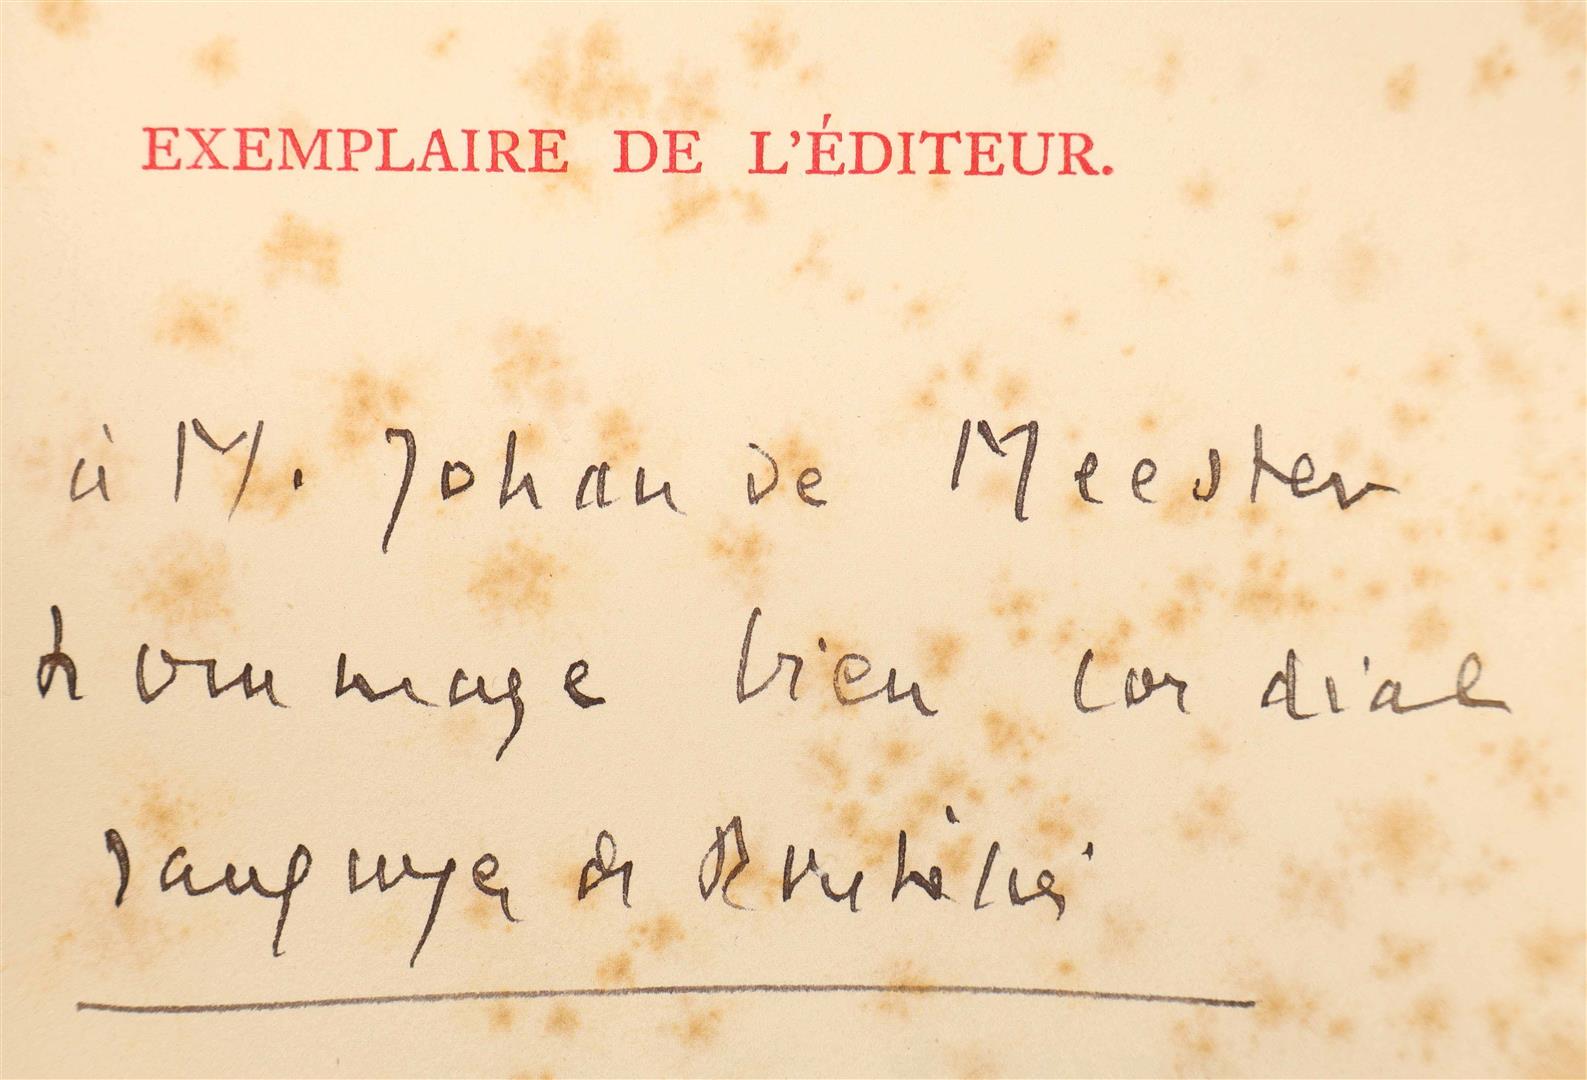 EXEMPLAIRE DE L'ÉDITEUR.
à M. Johan de Meester
hommage bien cordial
de